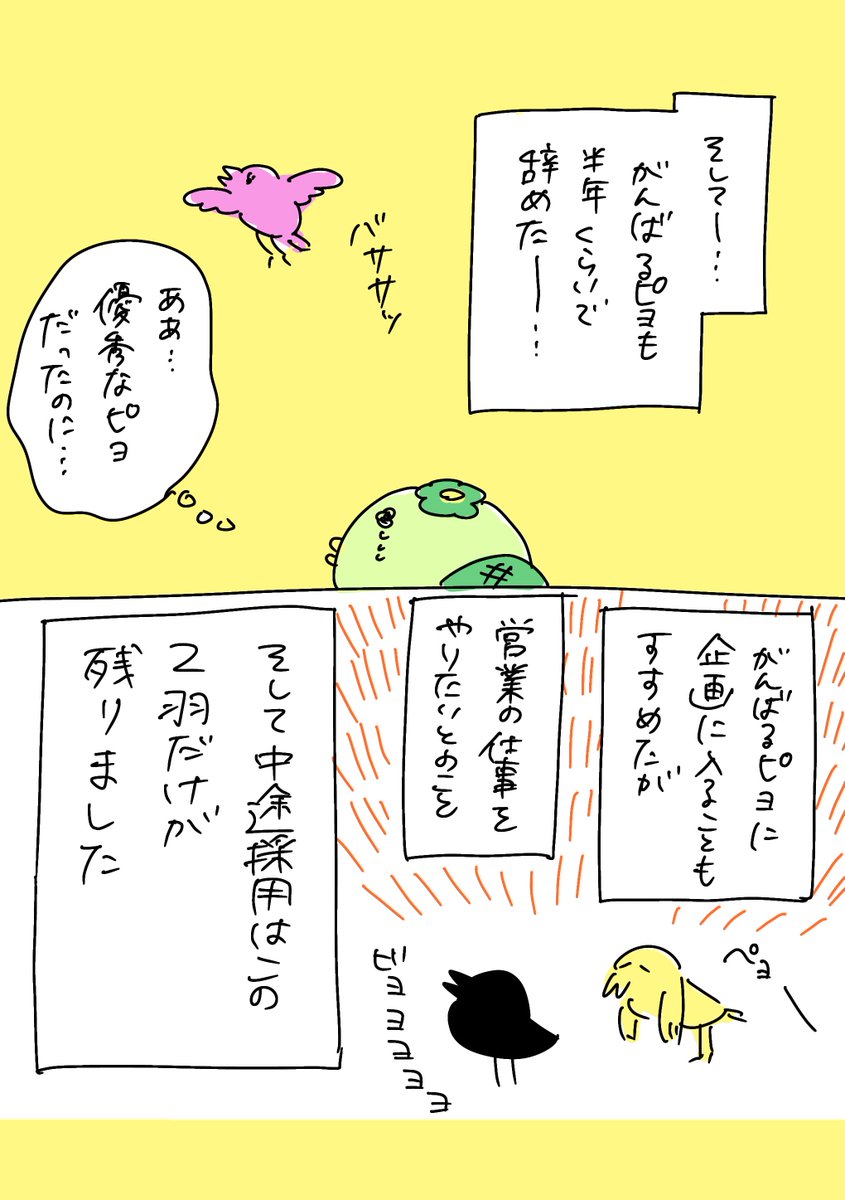 そしてー…
がんばるピヨも
半年くらいで
辞めたー…
バササッ
ああ…
優秀なピヨ
だったのに…
がんばるピヨに
企画に入ることも
すすめたが
営業の仕事を
やりたいとのこと
そして中途採用はこの
2羽だけが
残りました
ペョ
ビョョョョョョ